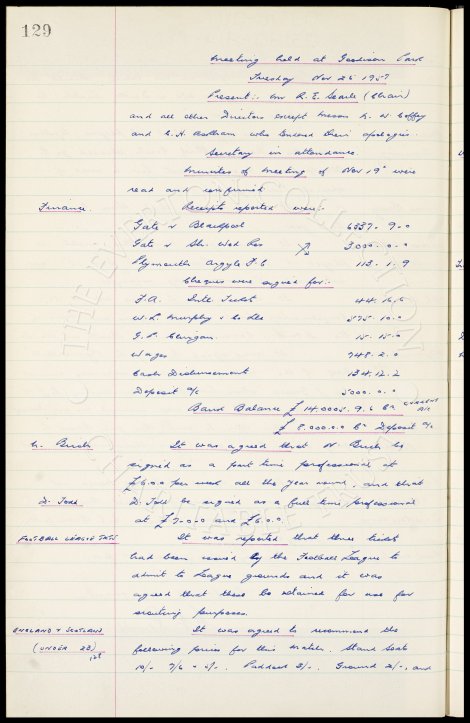 129
Meeting held at Goodison Park
Tuesday Nov 26 1957
Present:- Mr R. E. Searle (Chair)
and all other Directors except Messrs
and who tendered their apologies.
Secretary in attendance.
Minutes of meeting of Nov 19th were
read and confirmed
Finance. Receipts reported were:-
Gate v Blackpool 6337. 9. 0
Gate v Sh. Wed Res 3000. 0. 0
Plymouth Argyle F.C 113. 1. 9
Cheques were signed for:-
F.A. Intl Tickets 44. 16. 6
W. L. Murphy & Co Ltd 575. 10. 0
G. P. 15. 15. 0
Wages 748. 2. 0
Cash Disbursement 134. 12. 2
Deposit a/c 5000. 0. 0
Bank Balance £ 14,000 9. 6 Cr CURRENT A/C
£ 8,000.0.0 Cr Deposit a/c
It was agreed that N. be
signed as a part time professional at
£6.0.0 per week all the year round, and that
D. Todd D. Todd be signed as a full time professional
at £7-0-0 and £6.0.0.
FOOTBALL LEAGUE TKTS It was reported that three tickets
had been issued by the Football League to
admit to League grounds and it was
agreed that these be retained for use for
scouting purposes.
ENGLAND v SCOTLAND It was agreed to recommend the
(UNDER 23) following prices for this match. Stand Seats
10/- 7/6 - 5/-. Paddock 3/-. Ground 2/-, and
THE EVERTON COLLECTION